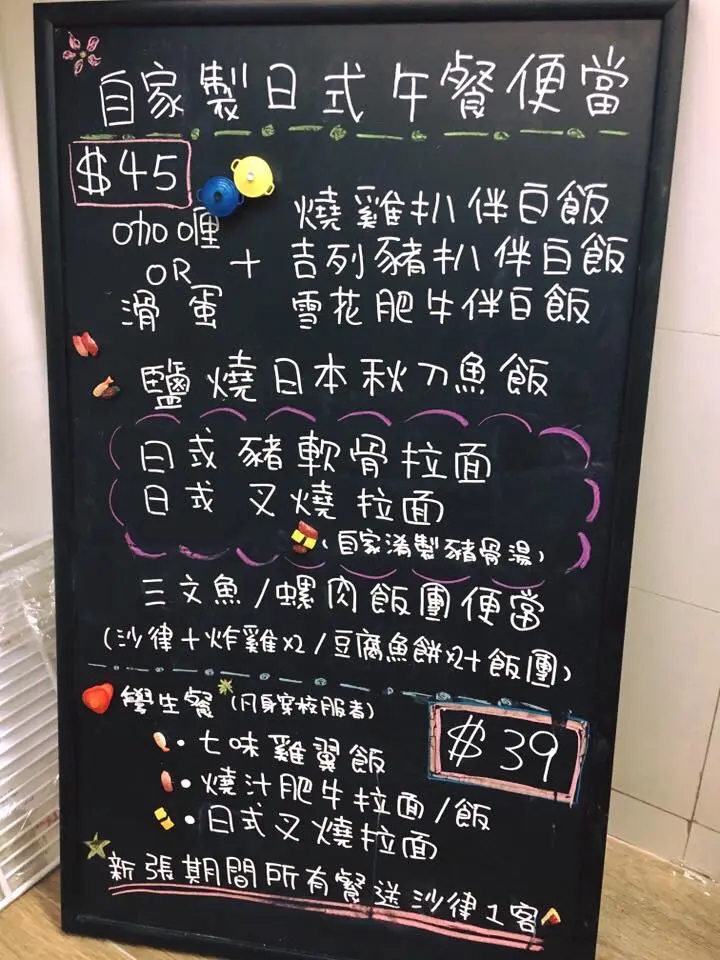 自家製日式午餐便當
$45
咖喱
OR
滑蛋
+
燒雞扒伴白飯
吉列豬扒伴白飯
雪花肥牛伴白飯
鹽燒日本秋刀魚飯
日式豬軟骨拉面
日式叉燒拉面
(自家淆製豬骨湯)
三文魚/螺肉飯團便當
(沙律+炸雞x2/豆腐魚餅x2+飯團)
學生餐(凡身穿校服者)
$39
•七味雞翼飯
•燒汁肥牛拉面/飯
•日式叉燒拉面
新張期間所有餐送沙律1客